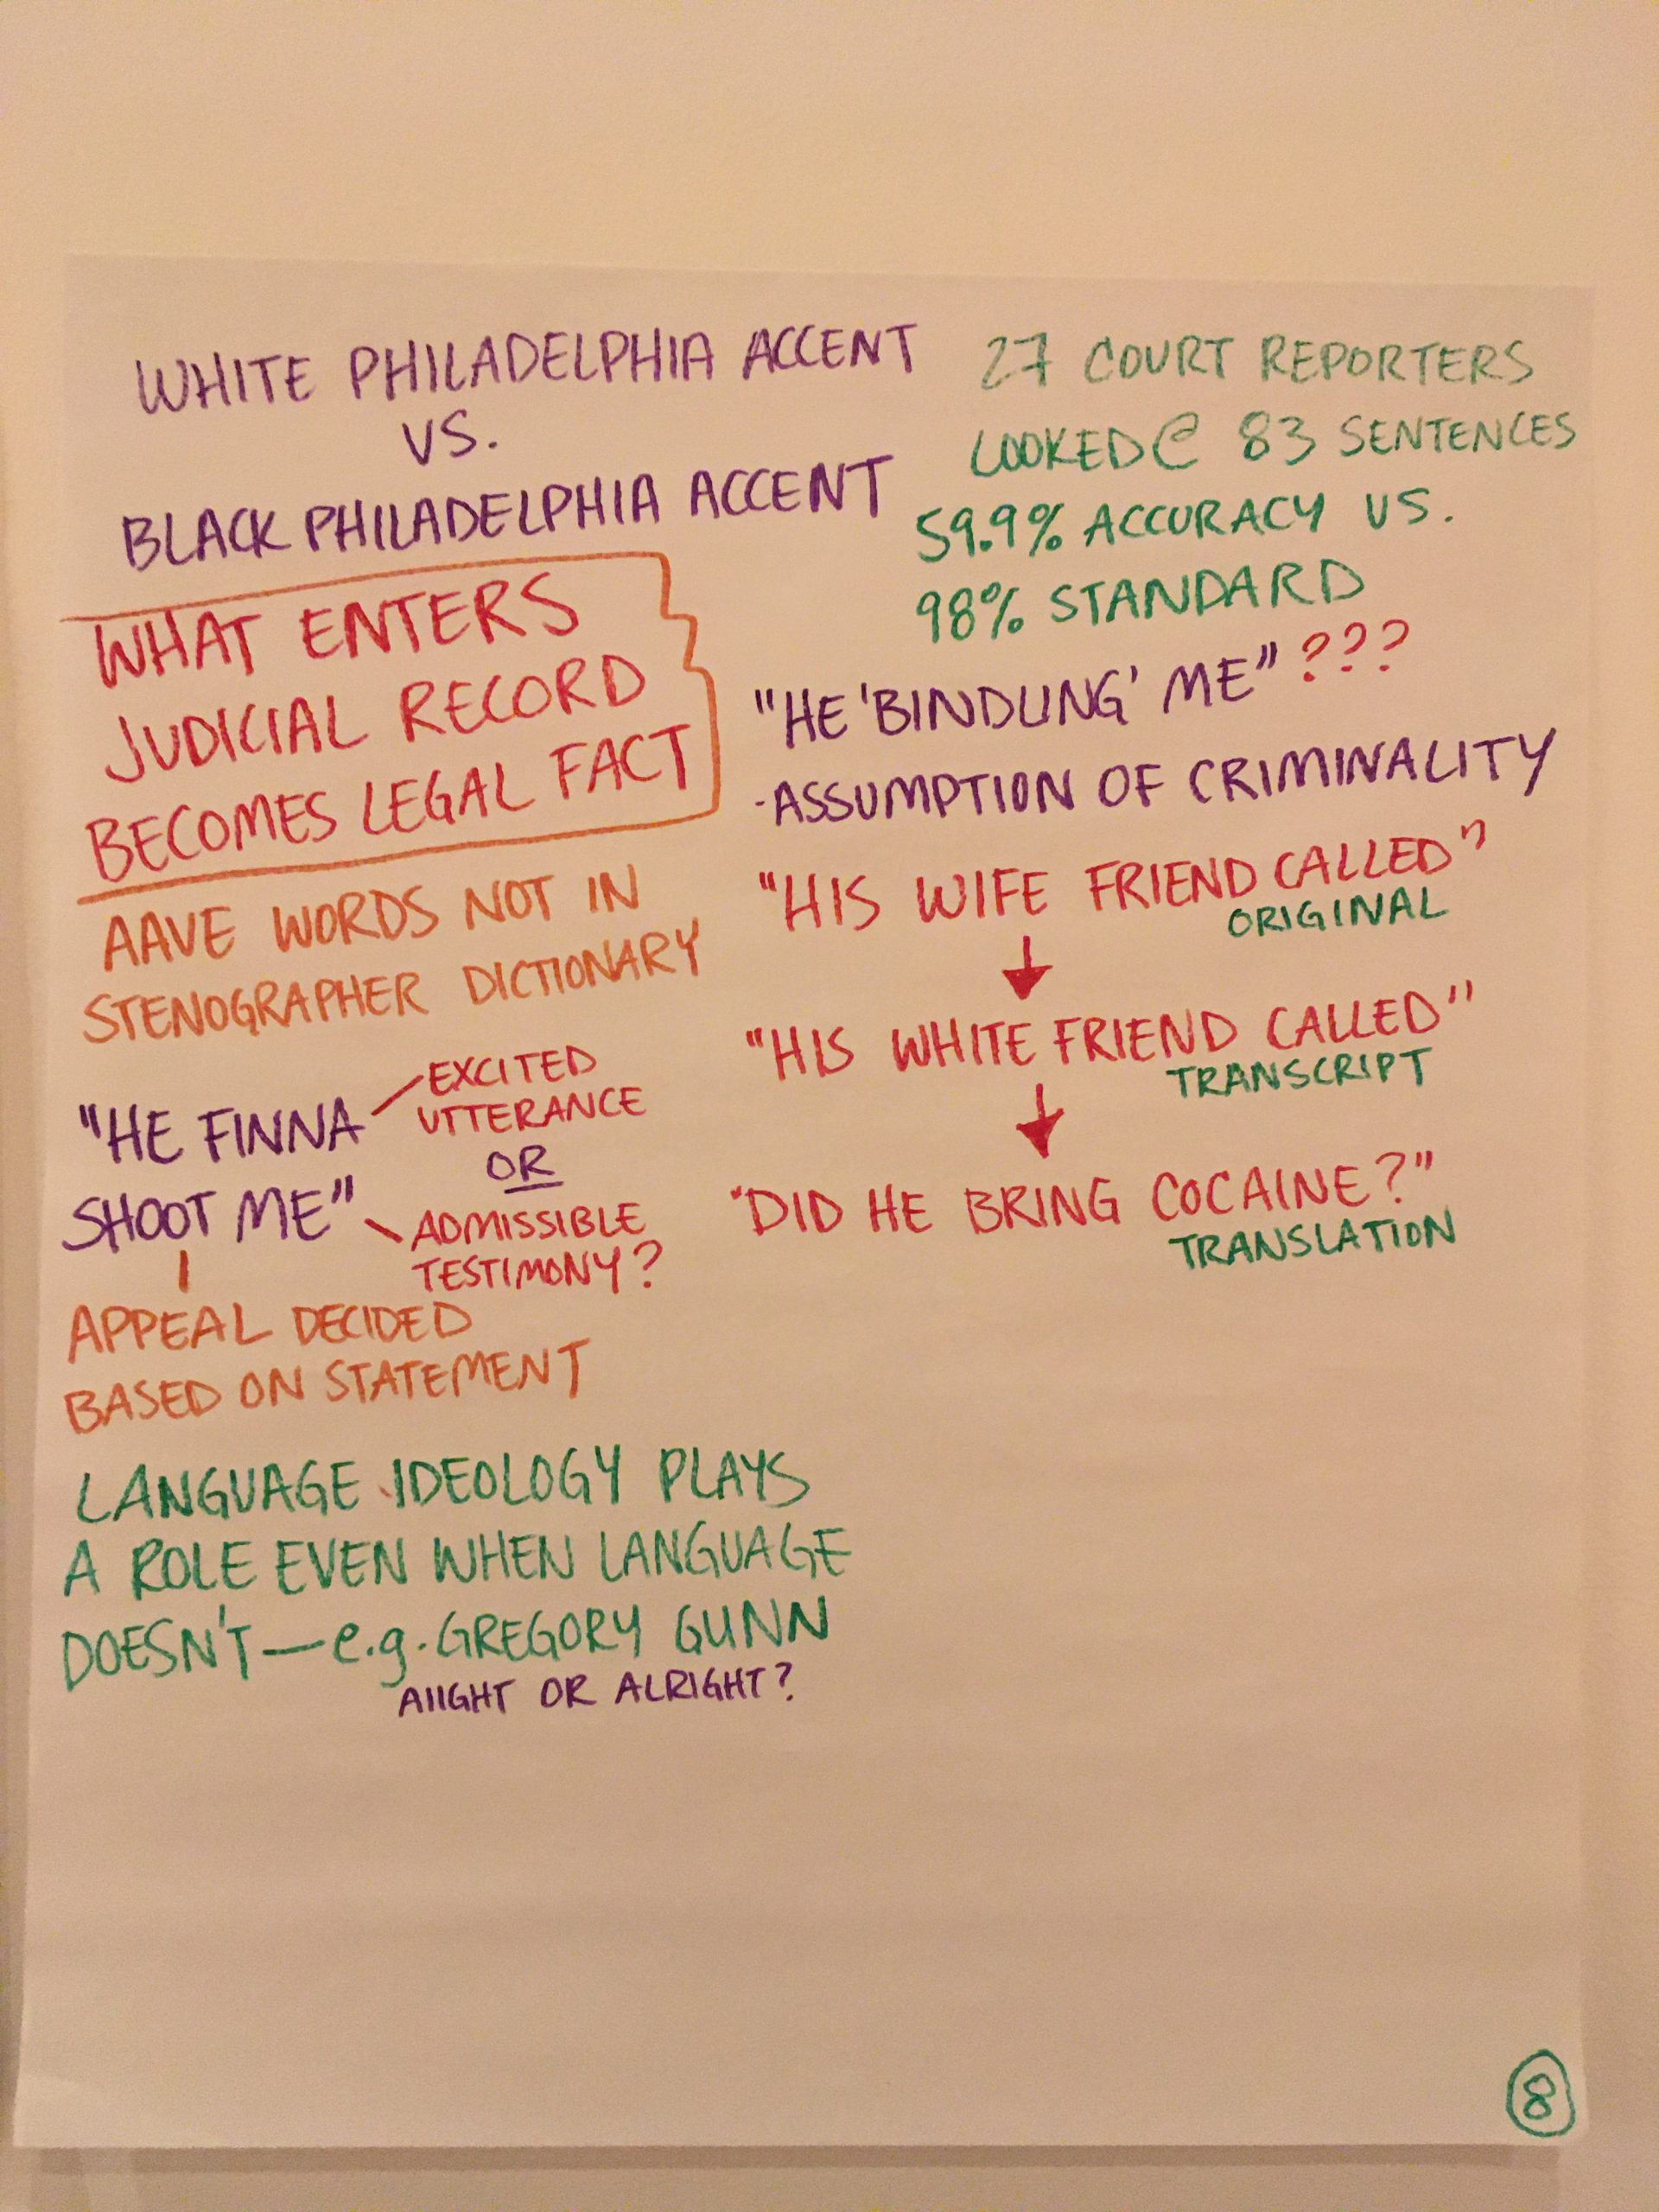 WHITE PHILADELPHIA ACCENT
VS.
BLACK PHILADELPHIA ACCENT
WHAT ENTERS
JUDICIAL RECORD
BECOMES LEGAL FACT
AAVE WORDS NOT IN
STENOGRAPHER DICTIONARY
"HE FINNA
SHOOT ME"
EXCITED
UTTERANCE
OR
ADMISSIBLE
TESTIMONY?
APPEAL DECIDED
BASED ON STATEMENT
LANGUAGE IDEOLOGY PLAYS
A ROLE EVEN WHEN LANGUAGE
DOESN'T — e.g. GREGORY GUNN
AIIGHT OR ALRIGHT?
27 COURT REPORTERS
LOOKED @ 83 SENTENCES
59.9% ACCURACY VS.
98% STANDARD
"HE 'BINDLING' ME" ???
-ASSUMPTION OF CRIMINALITY
"HIS WIFE FRIEND CALLED"
ORIGINAL
"HIS WHITE FRIEND CALLED"
TRANSCRIPT
"DID HE BRING COCAINE?"
TRANSLATION
8